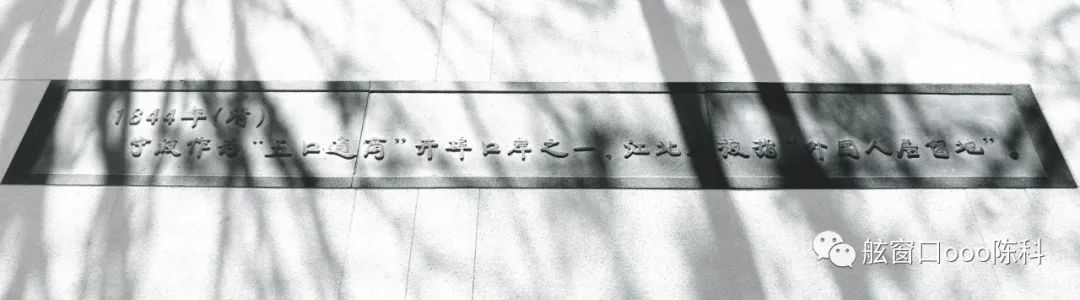 1844年(清)
宁波作为“五口通商”开埠口岸之一,江北岸被辟“外国人居留地”。
舷窗口ooo陈科